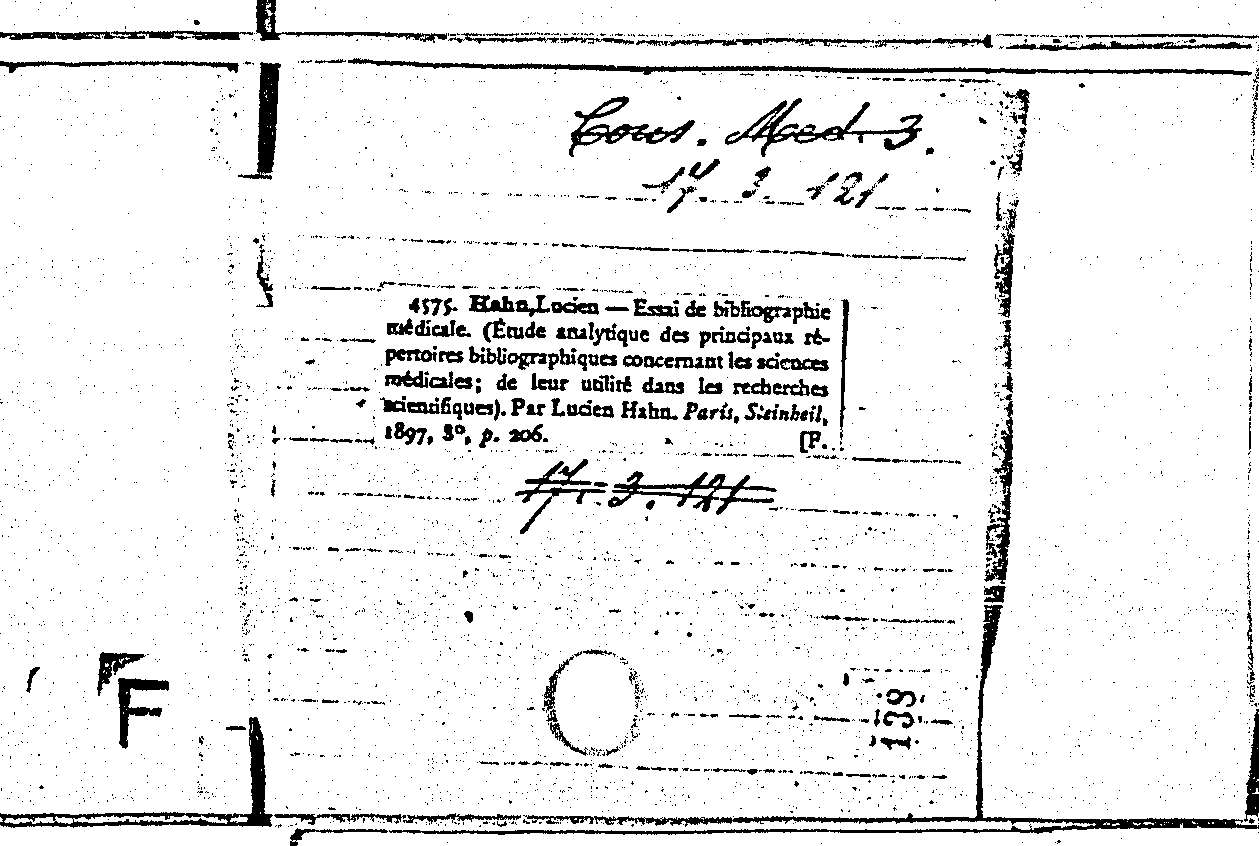 Cons. Med. 3.
17. 3. 121
4575. Hahn, Lucien — Essai de bibliographie
médicale. (Étude analytique des principaux ré-
pertoires bibliographiques concernant les sciences
médicales; de leur utilité dans les recherches
scientifiques). Par Lucien Hahn. Paris, Steinheil,
1897, 8°, p. 206. [F.
17. 3. 121
F
139